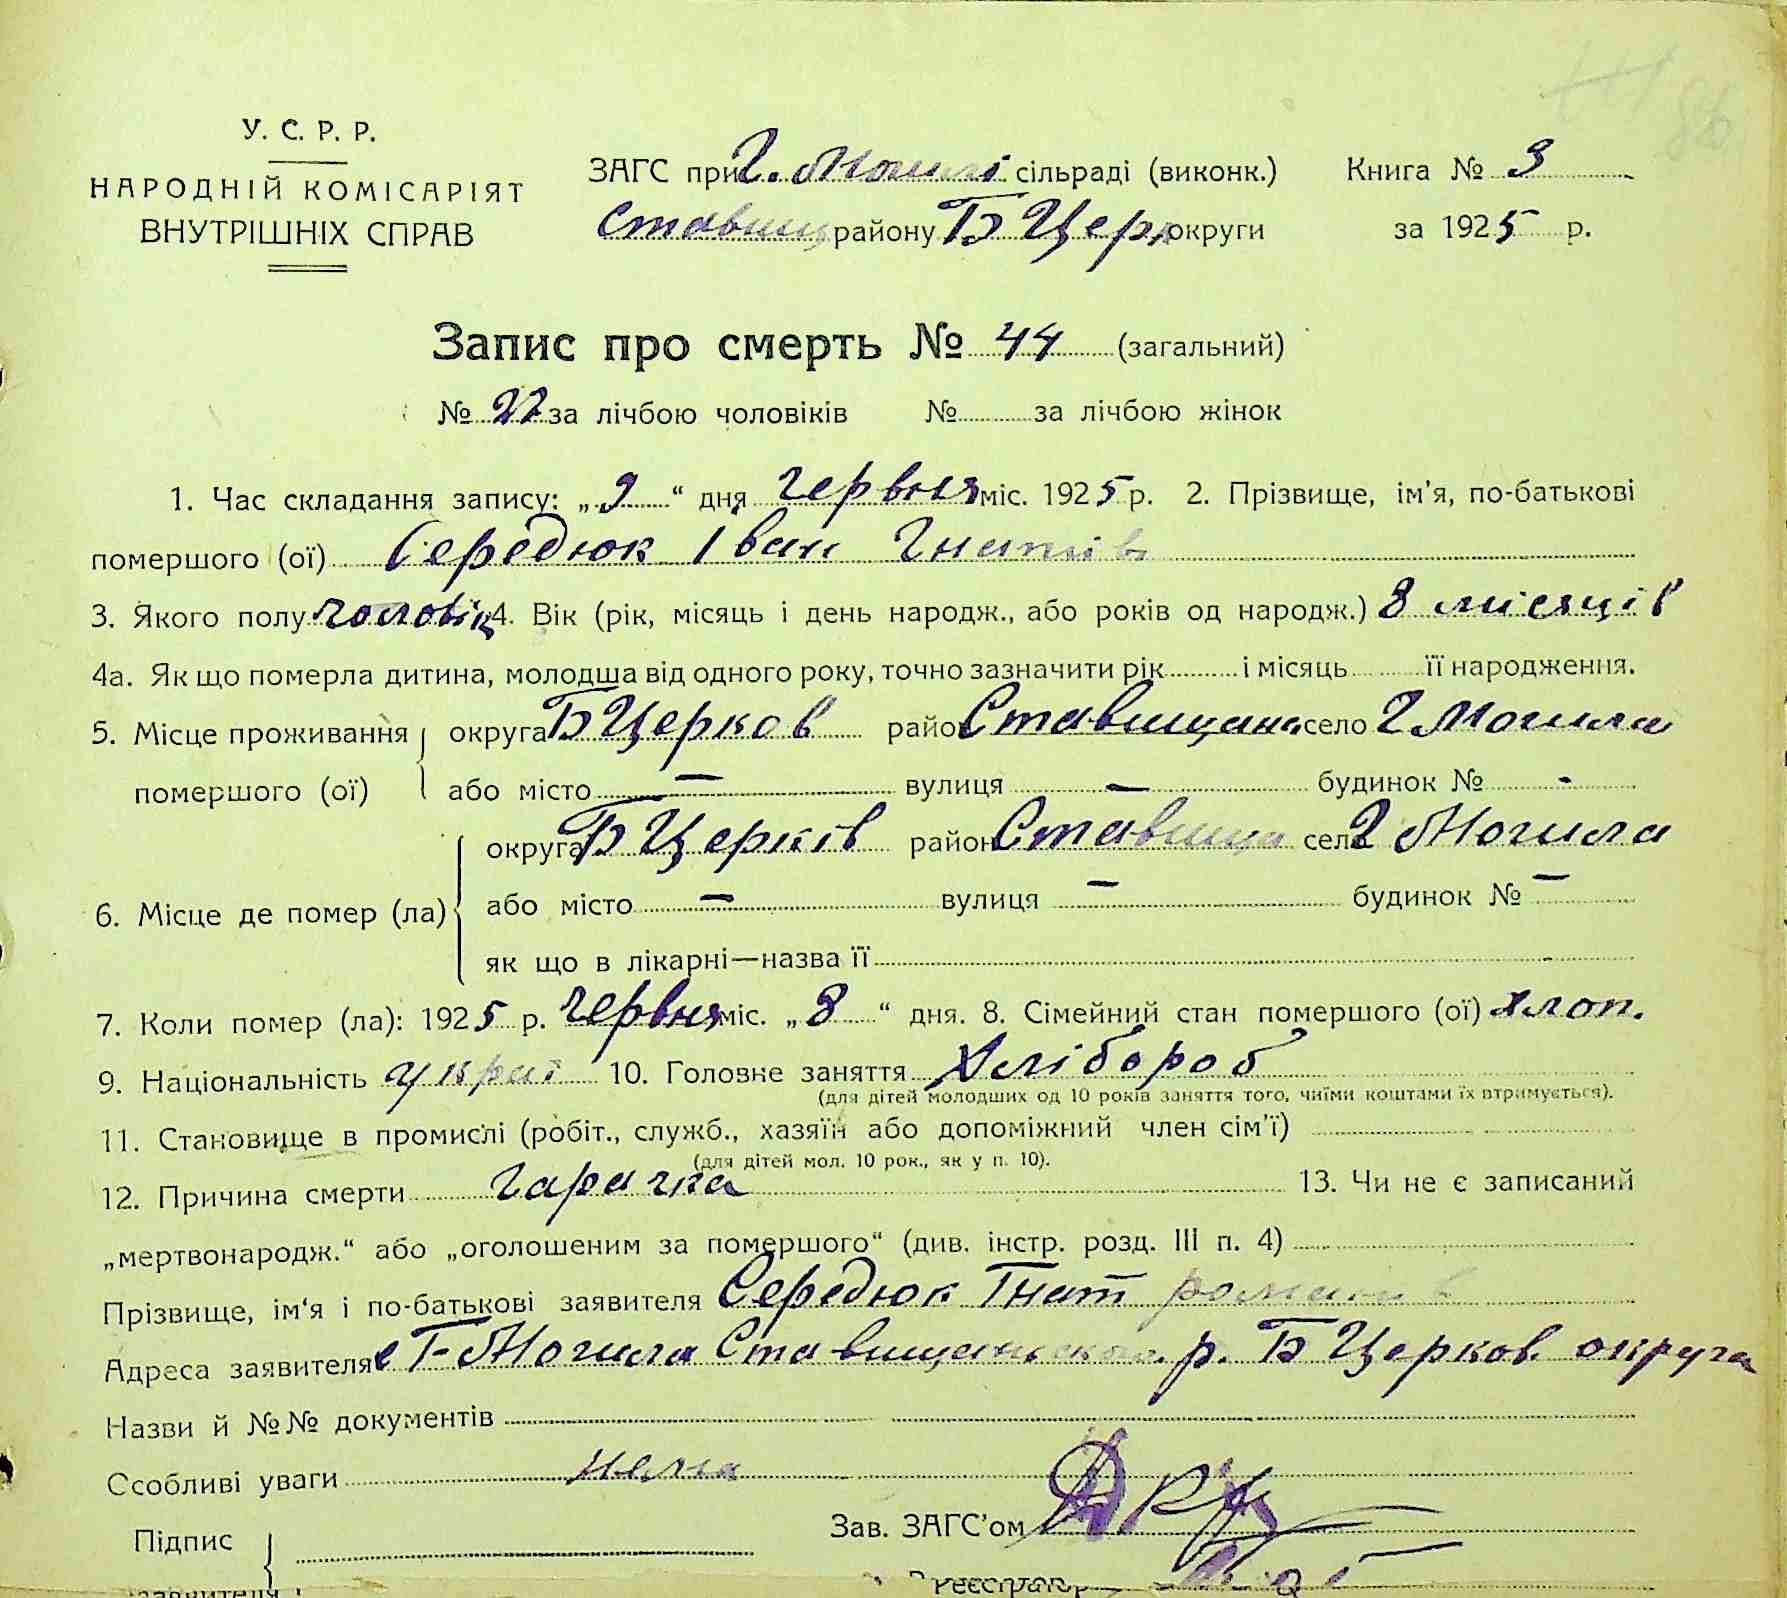 86
У. С. Р. Р.
НАРОДНІЙ КОМІСАРІЯТ
ВНУТРІШНІХ СПРАВ
ЗАГС при Г. Могилі сільраді (виконк.) Книга № 3
Ставищ району Б Церк округи за 1925 р.
Запис про смерть № 44 (загальний)
№ 22 за лічбою чоловіків № за лічбою жінок
1. Час складання запису: „9“ дня червня міс. 1925 р. 2. Прізвище, ім'я, по-батькові
помершого (ої) Середюк Іван Гнатів
3. Якого полу чоловіц 4. Вік (рік, місяць і день народж., або років од народж.) 8 місяців
4а. Як що померла дитина, молодша від одного року, точно зазначити рік і місяць її народження.
5. Місце проживання округа Б Церков район Ставищан село Г Могила
помершого (ої) або місто — вулиця — будинок № -
округа Б Церків район Ставища село Г Могила
6. Місце де помер (ла) або місто — вулиця — будинок № —
як що в лікарні—назва її
7. Коли помер (ла): 1925 р. червня міс. „8“ дня. 8. Сімейний стан помершого (ої) хлоп.
9. Національність украї 10. Головне заняття Хлібороб
(для дітей молодших од 10 років заняття того, чиїми коштами їх втримується).
11. Становище в промислі (робіт., служб., хазяїн або допоміжний член сім'ї)
(для дітей мол. 10 рок., як у п. 10).
12. Причина смерти гарячка 13. Чи не є записаний
„мертвонародж.“ або „оголошеним за помершого“ (див. інстр. розд. III п. 4)
Прізвище, ім'я і по-батькові заявителя Середюк Гнат Романів
Адреса заявителя с Г-Могила Ставищанського р. Б Церков. округа
Назви й №№ документів
Особливі уваги нема
Зав. ЗАГС'ом
Підпис
заявителя
Реєстратор